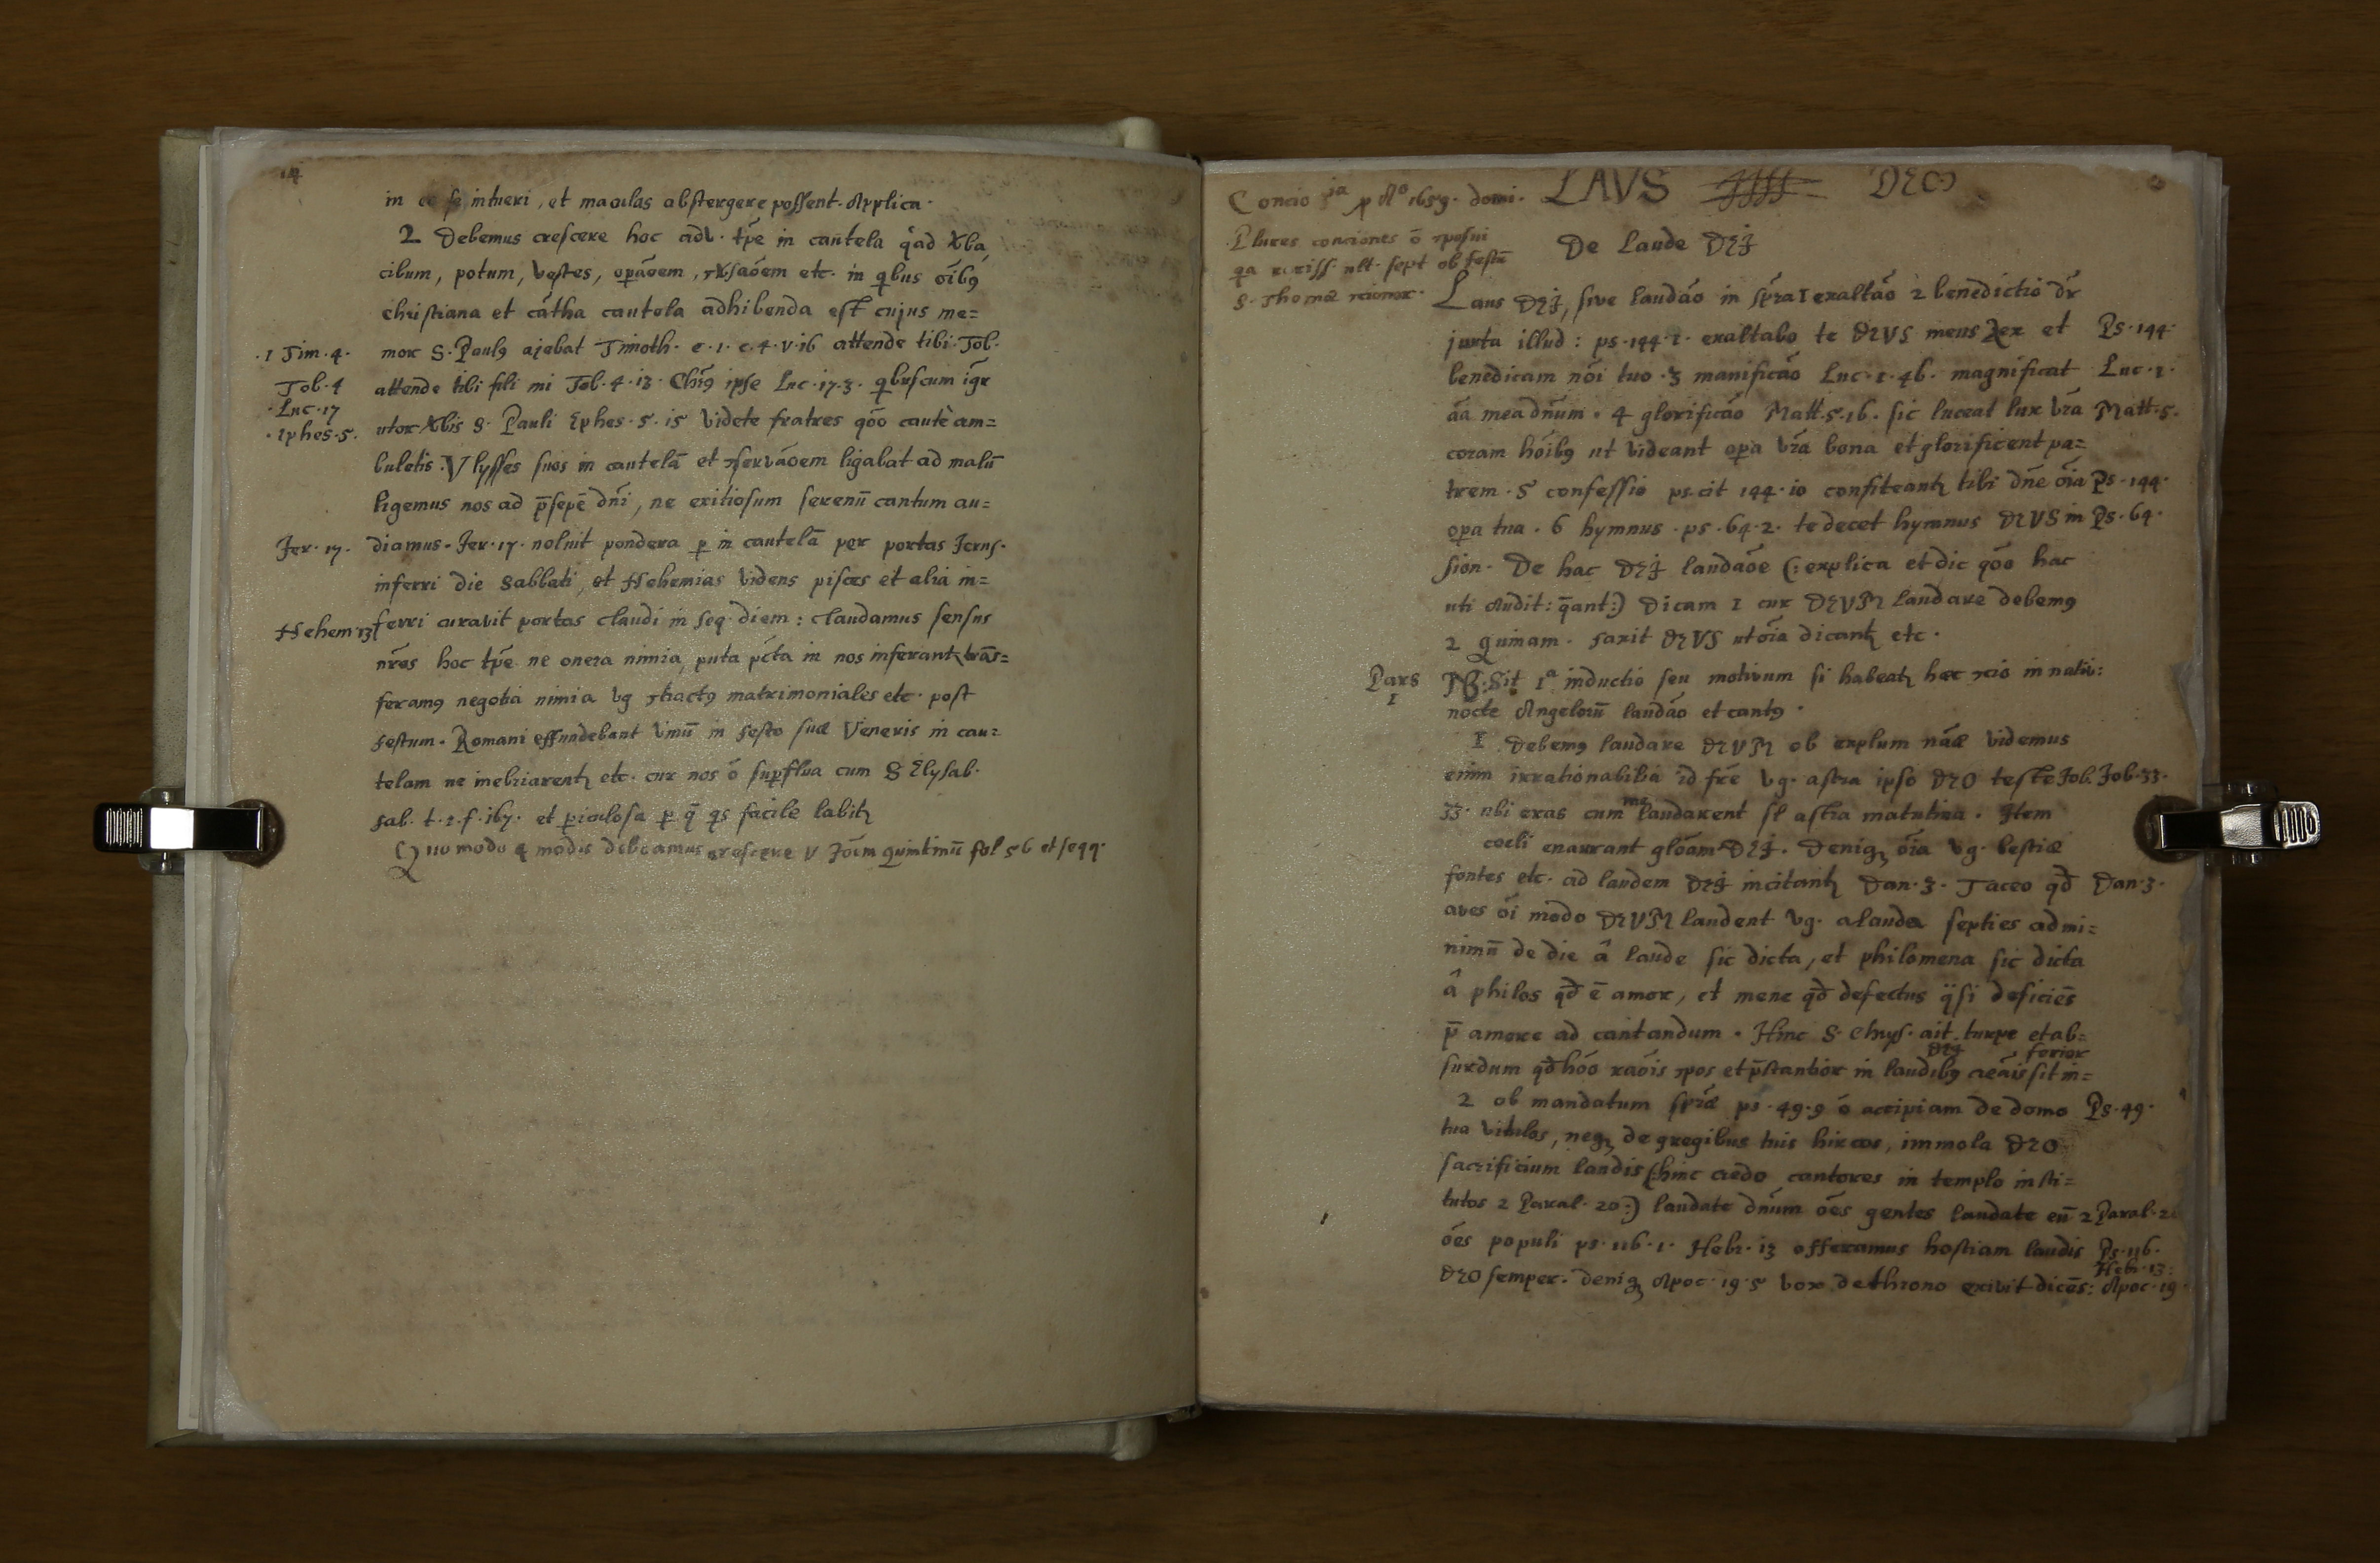 14
in se intueri, et maculas abstergere possent. Applica.
2 Debemus crescere hoc adv. tp̄e in cautela q̓ad Xba
cibum, potum, vestes, opāoem, ꝯv̓saōem etc. in qbus oībꝰ
christiana et cātha cautela adhibenda est cujus me=
.1 Tim.4. mor S. Paulꝰ ajebat Timoth. e.1.c.4.v.16 attende tibi. Tob.
Tob.4 attende tibi fili mi Tob.4.13. Chrꝰ ipse Luc.17.3. qbuscum igr
.Luc.17
.Ephes.5. utor Xbis S. Pauli Ephes.5.15 Videte fratres qōo cautè am=
buletis. Vlysses suos in cautelā et ꝯservāoem ligabat ad malū
ligemus nos ad p̄sepē dn̄i, ne exitiosum serenū cantum au=
Jer.17. diamus. Jer.17. noluit pondera ꝑ in cautelā per portas Jerus.
inferri die Sabbati, et Nehemias videns pisces et alia in=
Nehem.13 ferri curavit portas claudi in seq. diem: claudamus sensus
nr̄os hoc tp̄e ne onera nimia, puta pc̄ta in nos inferantꝛ, trās=
feramꝰ negotia nimia vg ꝯtractꝰ matrimoniales etc. post
festum. Romani effundebant vinū in festo suæ Veneris in cau=
telam ne inebriarentꝛ etc. cur nos ō suꝑflua cum S Elysab.
fab. t.1.f.167. et ꝑiculosa ꝑ q̄ qs facile labitꝛ
Quo modo 4 modis debeamus crescere v Joēm Quintinū fol 56 et seqq.
Concio 1ᵃ ꝑ Aº 1659. domi. LAVS DEO
Plures conciones ō ꝯposui
qa ult. sept ob festū
S. Thomæ
De Laude DEJ
Laus DEJ, sive laudāo in sp̄ra 1 exaltāo 2 benedictio dr̄
juxta illud: ps.144.1. exaltabo te DEVS meus Rex et Ps.144.
benedicam nōi tuo.3 manificāo Luc.1.46. magnificat Luc.1.
āa mea dn̄um. 4 glorificāo Matt.5.16. sic luceat lux vr̄a Matt.5.
coram hōibꝰ ut videant opa vr̄a bona et glorificent pa=
trem. 5 confessio ps.cit 144.10 confiteantꝛ tibi dn̄e ōia Ps.144.
opa tua. 6 hymnus. ps.64.2. te decet hymnus DEVS in Ps.64.
sion. De hac DEJ laudāoe (: explica et dic qōo hac
uti Audit: q̄ant:) Dicam 1 cur DEVM laudare debemꝰ
2 Quinam. Faxit DEVS ut ōia dicantꝛ etc.
Pars NB: Sit 1ᵃ inductio seu motivum si habeatꝛ hæc ꝯcio in nativ:
1 nocte Angelorū laudāo et cantꝰ.
1 Debemꝰ laudare DEVM ob explum nāæ videmus
enim irrationabilia id fr̄e vg. astra ipso DEO teste Job. Job.33.
33. ubi eras cum me laudarent sl astra matutina. Item
coeli enarrant glōam DEJ. Deniqꝫ ōia vg. bestiæ
fontes etc. ad laudem DEJ incitantꝛ Dan.3. Taceo qđ Dan.3.
aves ōi modo DEVM laudent vg. alauda septies ad mi=
nimū de die â laude sic dicta, et philomena sic dicta
â philos qđ ē amor, et mene qđ defectus q̈si deficiēs
p̄ amore ad cantandum. Hinc S. Chrys. ait turpe et ab=
surdum qđ hōo raōis ꝯpos et p̄stantior in laudibꝰ DEJ creāis sit in=
ferior
2 ob mandatum sp̄ræ ps.49.9 ō accipiam de domo Ps.49.
tua vitulos, neqꝫ de gregibus tuis hircos, immola DEO
sacrificium laudis (:hinc credo cantores in templo insti=
tutos 2 Paral.20:) laudate dn̄um ōes gentes laudate eū 2 Paral.20
ōes populi ps.116.1. Hebr.13 offeramus hostiam laudis Ps.116.
Hebr.13:
DEO semper. deniqꝫ Apoc.19.5 vox de throno exivit dicēs: Apoc.19